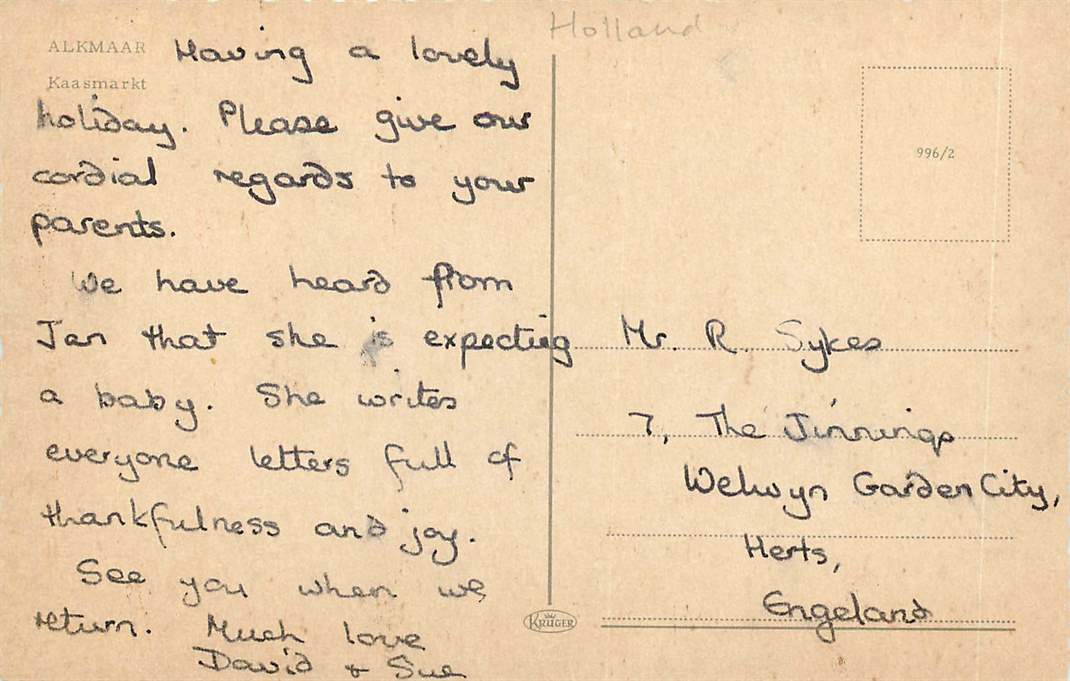 Holland
ALKMAAR
Kaasmarkt
Having a lovely
holiday. Please give our
cordial regards to your
parents.
We have heard from
Jan that she is expecting
a baby. She writes
everyone letters full of
thankfulness and joy.
See you when we
return. Much love
David + Sue
996/2
Mr. R. Sykes
7, The Jinnings
Welwyn Garden City,
Herts,
Engeland
KRUGER